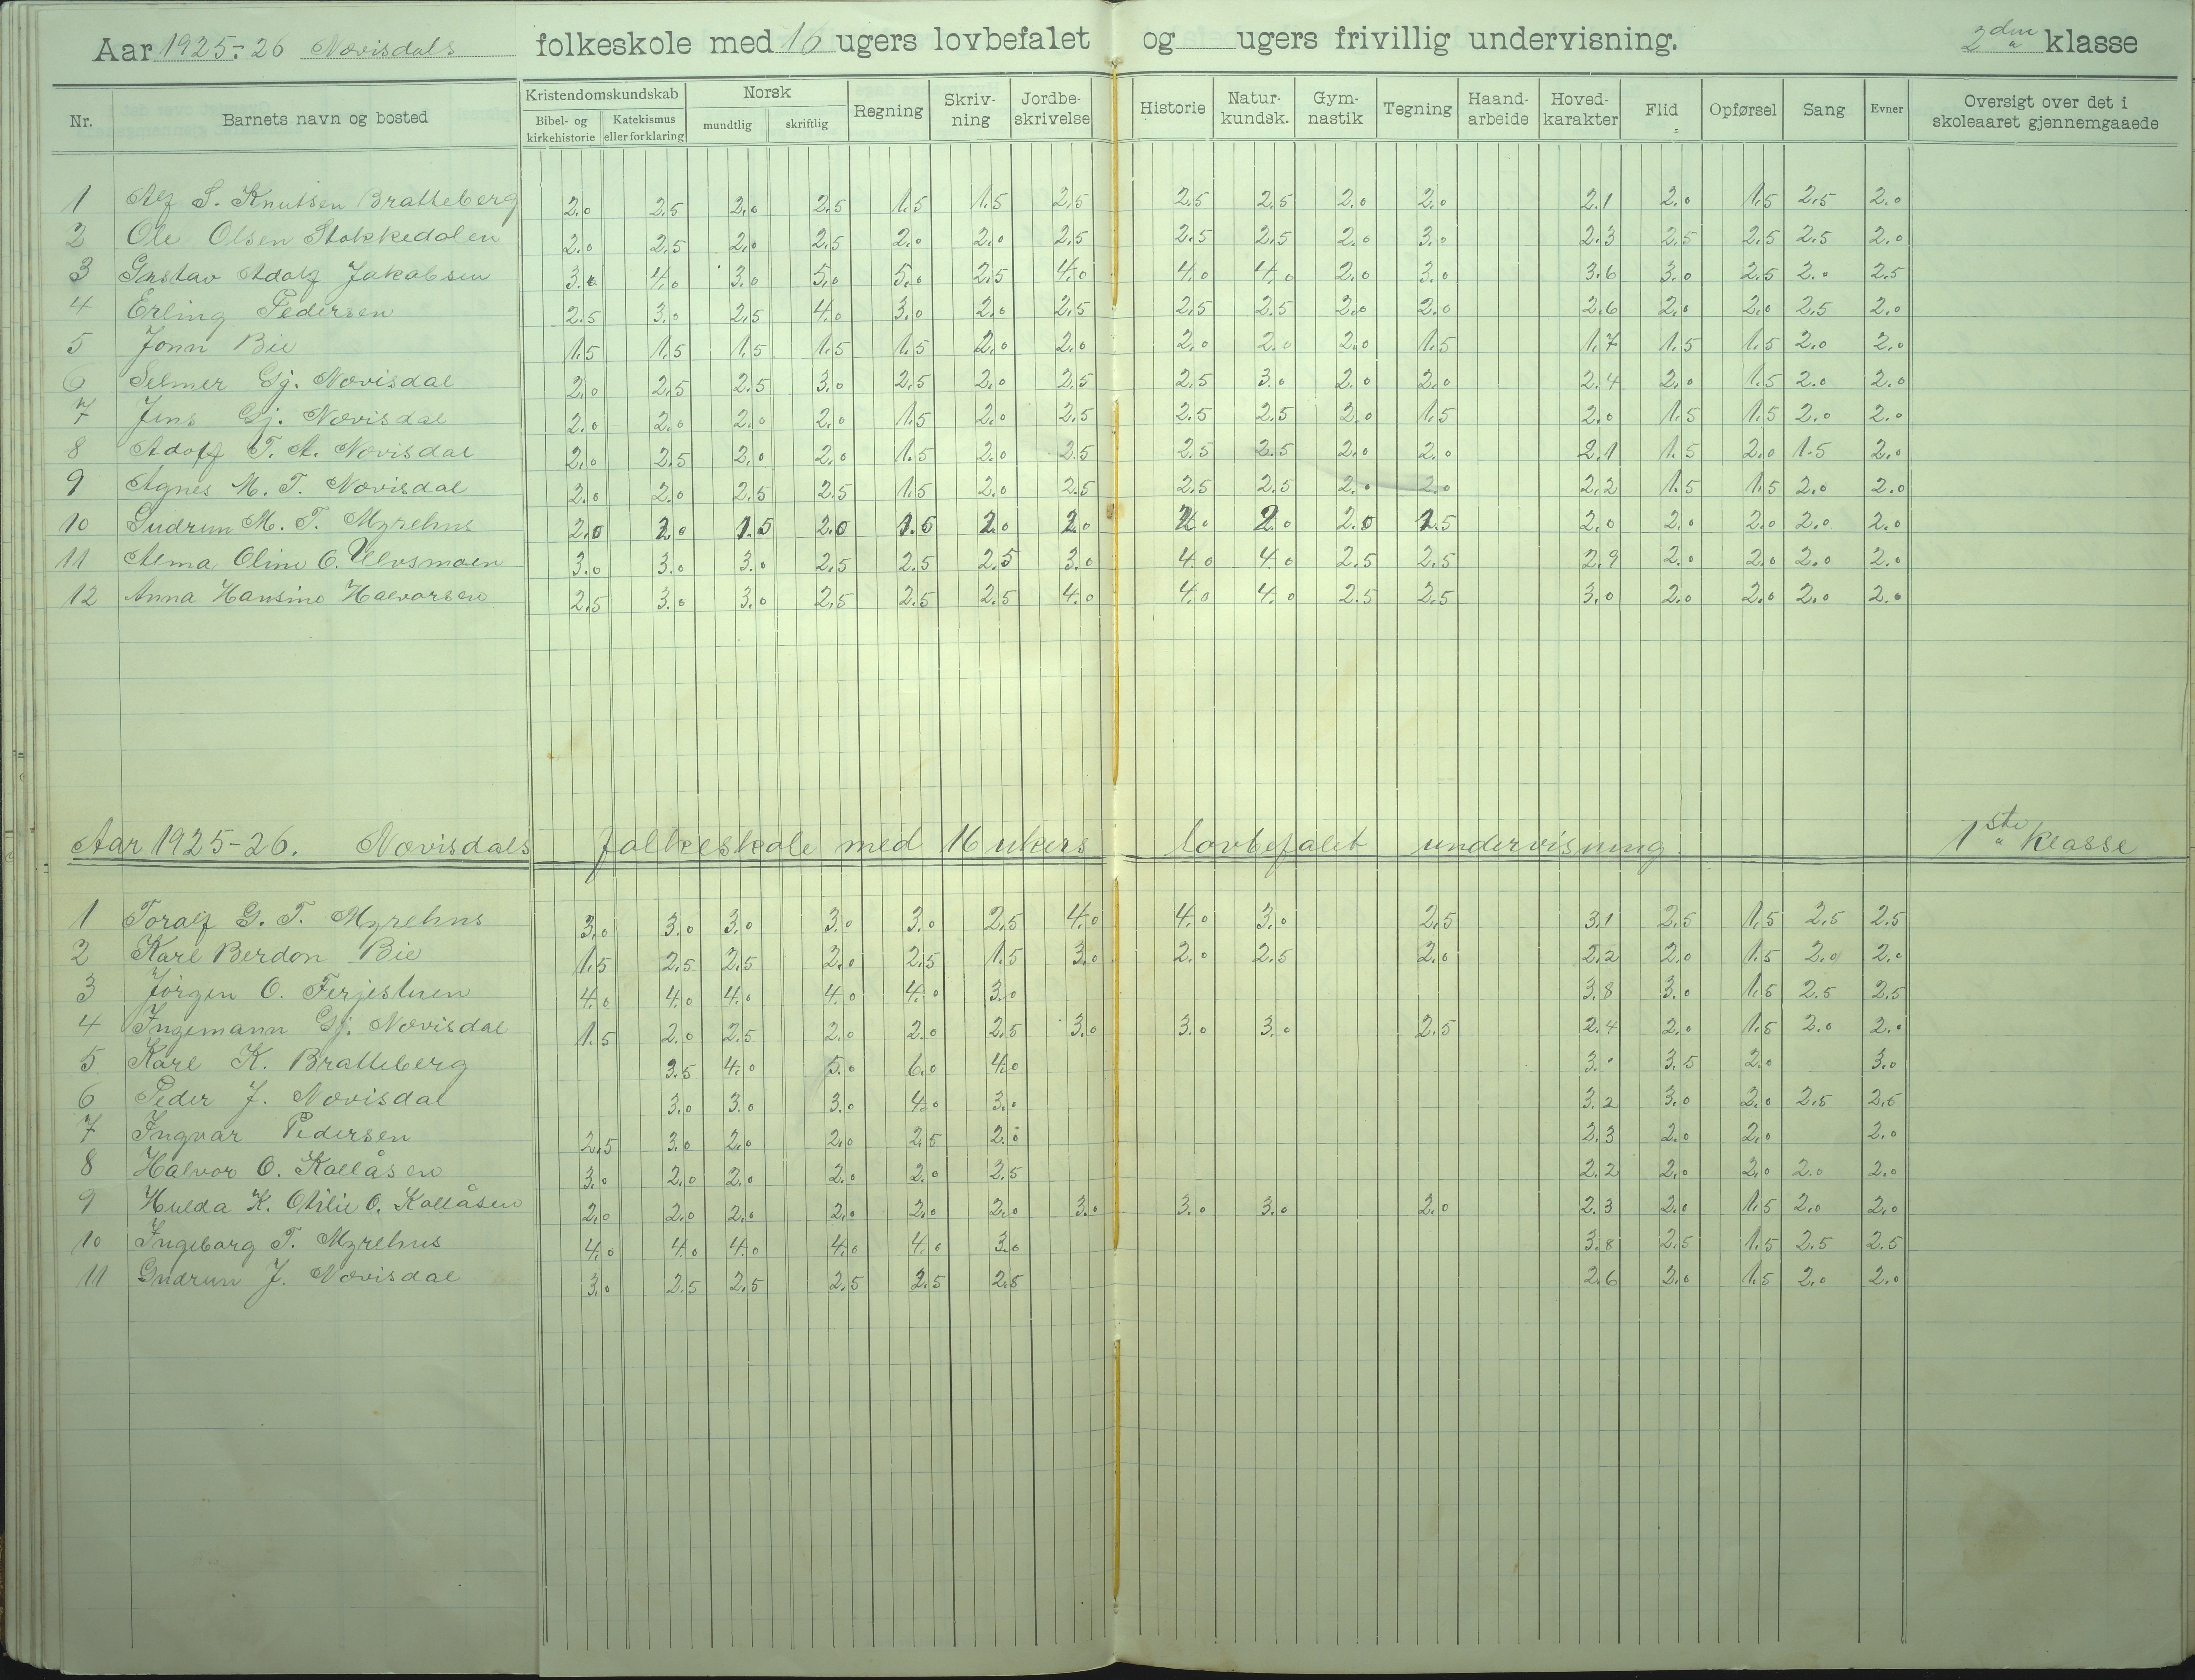 Aar 1925-26 Novisdals folkeskole med 16 ugers lovbefalet og ugers frivillig undervisning. 2den klasse
Nr. Barnets navn og bosted Kristendomskundskab Bibel- og kirkehistorie Katekismus eller forklaring Norsk mundtlig skriftlig Regning Skriv-ning Jordbe-skrivelse Historie Natur-kundsk. Gym-nastik Tegning Haand-arbeide Hoved-karakter Flid Opførsel Sang Evner Oversigt over det i skoleaaret gjennemgaaede
1 Alf S. Knutsen Bratteberg 2.0 2.5 2.0 2.5 1.5 1.5 2.5 2.5 2.5 2.0 2.0 2.1 2.0 1.5 2.5 2.0
2 Ole Olsen Stokkedalen 2.0 2.5 2.0 2.5 2.0 2.0 2.5 2.5 2.5 2.0 3.0 2.3 2.5 2.5 2.5 2.0
3 Gustav Adolf Jakobsen 3.0 4.0 3.0 5.0 5.0 2.5 4.0 4.0 4.0 2.0 3.0 3.6 3.0 2.5 2.0 2.5
4 Erling Pedersen 2.5 3.0 2.5 4.0 3.0 2.0 2.5 2.5 2.5 2.0 2.0 2.6 2.0 2.0 2.5 2.0
5 Jonn Bie 1.5 1.5 1.5 1.5 1.5 2.0 2.0 2.0 2.0 2.0 1.5 1.7 1.5 1.5 2.0 2.0
6 Selmer Gj. Novisdal 2.0 2.5 2.5 3.0 2.5 2.0 2.5 2.5 3.0 2.0 2.0 2.4 2.0 1.5 2.0 2.0
7 Jens Gj. Novisdal 2.0 2.0 2.0 2.0 1.5 2.0 2.5 2.5 2.5 2.0 1.5 2.0 1.5 1.5 2.0 2.0
8 Adolf T. A. Novisdal 2.0 2.5 2.0 2.0 1.5 2.0 2.5 2.5 2.5 2.0 2.0 2.1 1.5 2.0 1.5 2.0
9 Agnes M. T. Novisdal 2.0 2.0 2.5 2.5 1.5 2.0 2.5 2.5 2.5 2.0 2.0 2.2 1.5 1.5 2.0 2.0
10 Gudrun M. T. Myrehus 2.0 2.0 1.5 2.0 1.5 2.0 2.0 2.0 2.0 2.0 1.5 2.0 2.0 2.0 2.0 2.0
11 Alma Oline O. Ulvsmoen 3.0 3.0 3.0 2.5 2.5 2.5 3.0 4.0 4.0 2.5 2.5 2.9 2.0 2.0 2.0 2.0
12 Anna Hansine Halvorsen 2.5 3.0 3.0 2.5 2.5 2.5 4.0 4.0 4.0 2.5 2.5 3.0 2.0 2.0 2.0 2.0
Aar 1925-26. Novisdals folkeskole med 16 ukers lovbefalet undervisning 1ste klasse
1 Toralf G. T. Myrehus 3.0 3.0 3.0 3.0 3.0 2.5 4.0 4.0 3.0 2.5 3.1 2.5 1.5 2.5 2.5
2 Karl Berdon Bie 1.5 2.5 2.5 2.0 2.5 1.5 3.0 2.0 2.5 2.0 2.2 2.0 1.5 2.0 2.0
3 Jørgen O. Ferjestuen 4.0 4.0 4.0 4.0 4.0 3.0 3.8 3.0 1.5 2.5 2.5
4 Ingemann Gj. Novisdal 1.5 2.0 2.5 2.0 2.0 2.5 3.0 3.0 3.0 2.5 2.4 2.0 1.5 2.0 2.0
5 Karl K. Bratteberg 3.5 4.0 5.0 6.0 4.0 3.5 2.0 3.0
6 Peder J. Novisdal 3.0 3.0 3.0 4.0 3.0 3.2 3.0 2.0 2.5 2.5
7 Ingvar Pedersen 2.5 3.0 2.0 2.0 2.5 2.0 2.3 2.0 2.0 2.0
8 Halvor O. Kallåsen 3.0 2.0 2.0 2.0 2.0 2.5 2.2 2.0 2.0 2.0 2.0
9 Hulda K. Otilie O. Kallåsen 2.0 2.0 2.0 2.0 2.0 2.0 3.0 3.0 3.0 2.0 2.3 2.0 1.5 2.0 2.0
10 Ingeborg T. Myrehus 4.0 4.0 4.0 4.0 4.0 3.0 3.8 2.5 1.5 2.5 2.5
11 Gudrun J. Novisdal 3.0 2.5 2.5 2.5 2.5 2.5 2.6 2.0 1.5 2.0 2.0